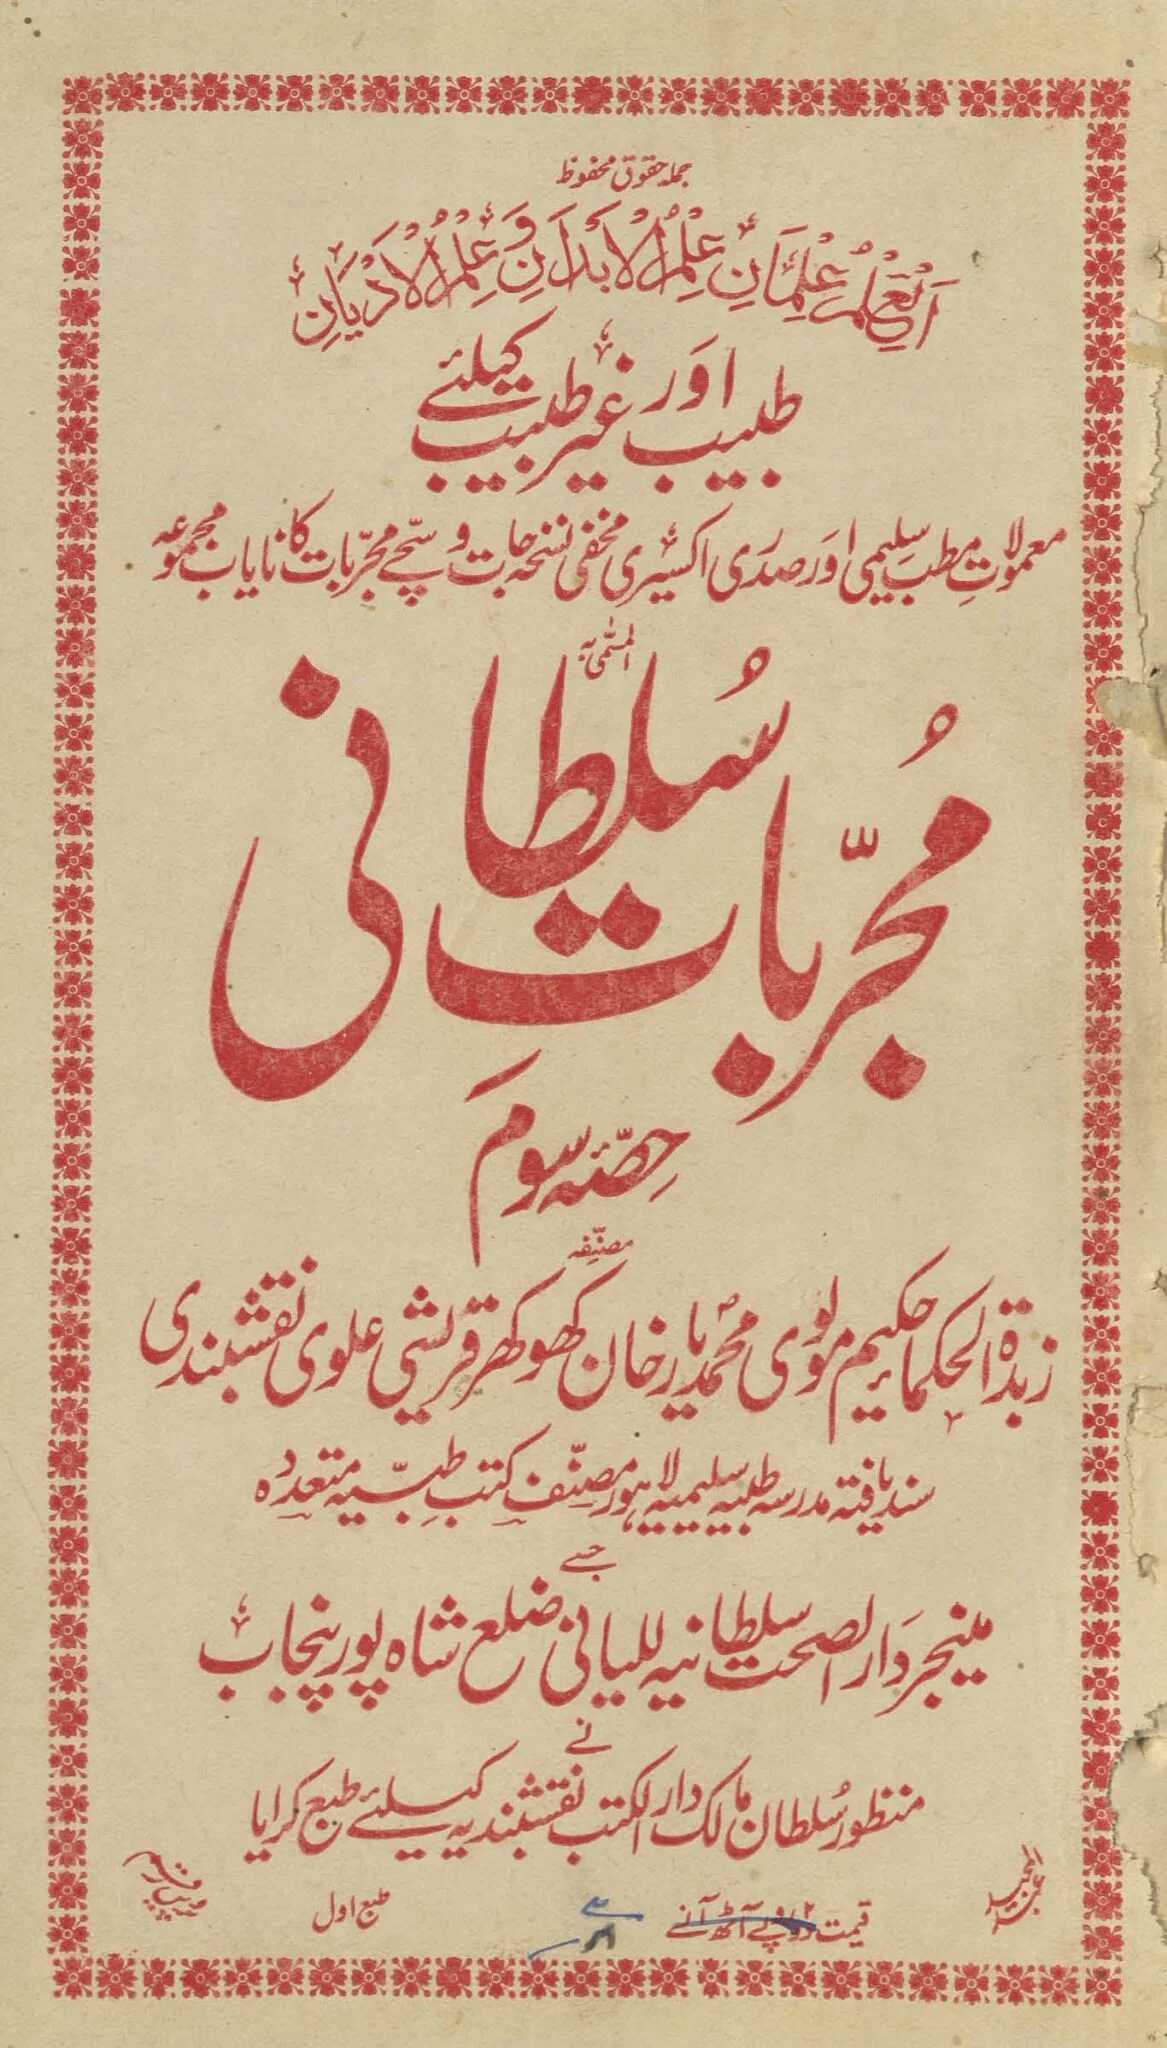 جملہ حقوق محفوظ
اَلْعِلْمُ عِلْمَانِ عِلْمُ الْاَبْدَانِ وَ عِلْمُ الْاَدْیَانِ
طبیب اور غیر طبیب کیلئے
معمولاتِ مطب سلیمی اور صدری اکسیری مخفی نسخہ جات و سچّے مجرّبات کا نایاب مجموعہ
المسمّٰی بہ
مُجرّبات سُلطانی
حِصّہ سوم
مصنّفہ
زبدۃ الحکماء حکیم مولوی محمد یار خان کھوکھر قریشی علوی نقشبندی
سند یافتہ مدرسہ طبیہ سلیمیہ لاہور مصنّف کتب طبّیہ متعددہ
جسے
مینجر دار الصحت سلطانیہ للیانی ضلع شاہ پور پنجاب
نے
منظور سُلطان مالک دار الکتب نقشبندیہ کیلئے طبع کرایا
عبد المجید
قیمت دو روپے آٹھ آنے
طبع اول